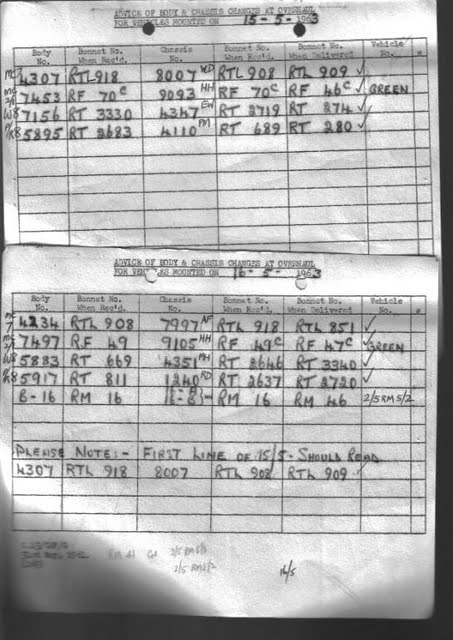 ADVICE OF BODY & CHASSIS CHANGES AT OVERHAUL
FOR VEHICLES MOUNTED ON 15-5-1963
Body No. Bonnet No. When Rec'd. Chassis No. Bonnet No. When Rec'd. Bonnet No. When Delivered Vehicle No.
4307 RTL 918 8007 RTL 908 RTL 909 ✓
7453 RF 70c 9093 HH RF 70c RF 46c ✓ GREEN
W8 7156 RT 3330 4347 EW RT 2719 RT 274 ✓
5895 RT 2683 4110 PM RT 689 RT 280 ✓
ADVICE OF BODY & CHASSIS CHANGES AT OVERHAUL
FOR VEHICLES MOUNTED ON 16-5-1963
Body No. Bonnet No. When Rec'd. Chassis No. Bonnet No. When Rec'd. Bonnet No. When Delivered Vehicle No.
4234 RTL 908 7997 AF RTL 918 RTL 851 ✓
7497 RF 49 9105 HH RF 49c RF 47c ✓ GREEN
W8 5883 RT 669 4351 MH RT 2646 RT 3340 ✓
5917 RT 811 1240 RD RT 2637 RT 2720 ✓
B-16 RM 16 RM 16 RM 46 2/5 RM 5/2
PLEASE NOTE:- FIRST LINE OF 15/5 - SHOULD READ
4307 RTL 918 8007 RTL 908 RTL 909 ✓
2/5 RM 5/2
16/5